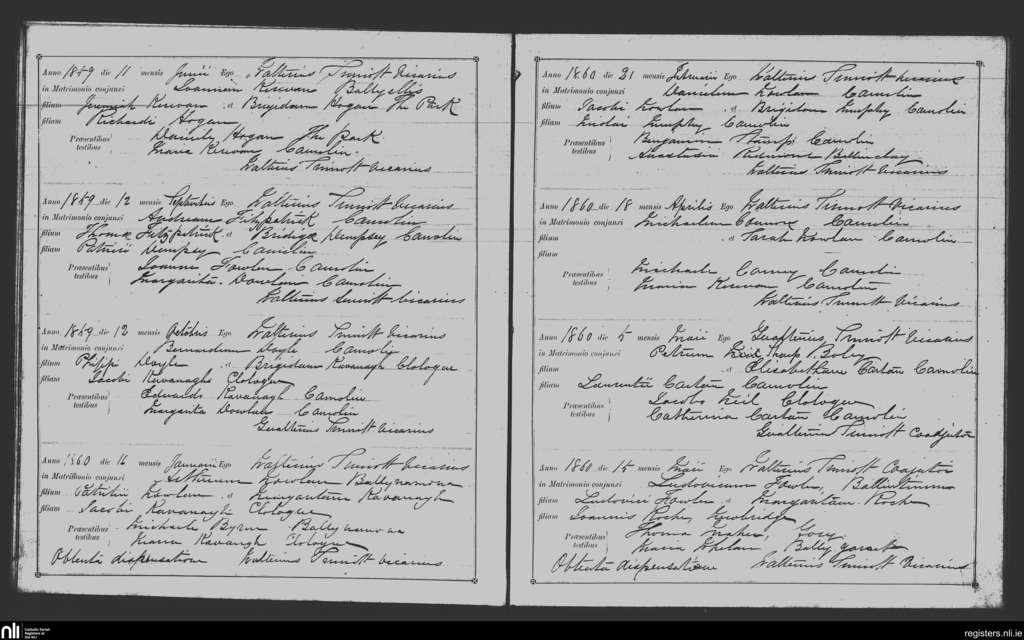 Anno 1859 die 11 mensis Junii Ego Walterius Sinnott Vicarius
in Matrimonio conjunxi Joannem Kirwan Ballyellis
filium Jeremiah Kirwan et Brigidam Hogan The Park
filiam Richardi Hogan
Præsentibus testibus Daniely Hogan The Park
Maria Kirwan Camolin.
Walterius Sinnott Vicarius
Anno 1859 die 12 mensis Septembris Ego Walterius Sinnott Vicarius
in Matrimonio conjunxi Andream Fitzpatrick Camolin
filium Thomæ Fitzpatrick et Bridigæ Dempsey Camolin
filiam Patricii Dempsey Camolin
Præsentibus testibus Joanne Fowler Camolin
Margarita Dowlan Camolin
Walterius Sinnott Vicarius
Anno 1859 die 12 mensis Octobris Ego Walterius Sinnott Vicarius
in Matrimonio conjunxi Bernardum Doyle Camolin
filium Philippi Doyle et Brigidam Kavanagh Clologue
filiam Jacobi Kavanagh Clologue
Præsentibus testibus Edwards Kavanagh Camolin
Margarita Dowlan Camolin
Gualterius Sinnott Vicarius
Anno 1860 die 16 mensis Januarii Ego Walterius Sinnott Vicarius
in Matrimonio conjunxi Kowlan
filium Patritii Kowlan et Margaritam Kavanagh
filiam Jacobi Kavanagh Clologue
Præsentibus testibus Michaele Byrne
Maria Kavanagh Clologue
Obtenta dispensatione Walterius Sinnott Vicarius
Anno 1860 die 21 mensis Februarii Ego Walterius Sinnott Vicarius
in Matrimonio conjunxi Danielem Kowlan Camolin
filium Jacobi Kowlan et Brigidam Murphy Camolin
filiam Murphy Camolin
Præsentibus testibus Benjamin Camolin
Anastasia Redmond
Walterius Sinnott Vicarius
Anno 1860 die 18 mensis Aprilis Ego Walterius Sinnott Vicarius
in Matrimonio conjunxi Michaelem Connors Camolin
filium et Sarah Kowlan Camolin
filiam
Præsentibus testibus Michaele Camolin
Maria Kirwan Camolin
Walterius Sinnott Vicarius
Anno 1860 die 5 mensis Maii Ego Gualterius Sinnott Vicarius
in Matrimonio conjunxi Petrum Neil
filium et Elisabetham Carton Camolin
filiam Laurentii Carton Camolin
Præsentibus testibus Jacobo Neil Clologue
Catherina Carton Camolin
Gualterius Sinnott Coadjutor
Anno 1860 die 15 mensis Maii Ego Walterius Sinnott Coadjutor
in Matrimonio conjunxi Ludovicum Fowler,
filium Ludovici Fowler et Margaritam Roche
filiam Joannis Roche, Newbridge
Præsentibus testibus Thoma Maher, Gorey
Maria Whelan
Obtenta dispensatione Walterius Sinnott Vicarius
nli Catholic Parish Registers at the NLI
registers.nli.ie